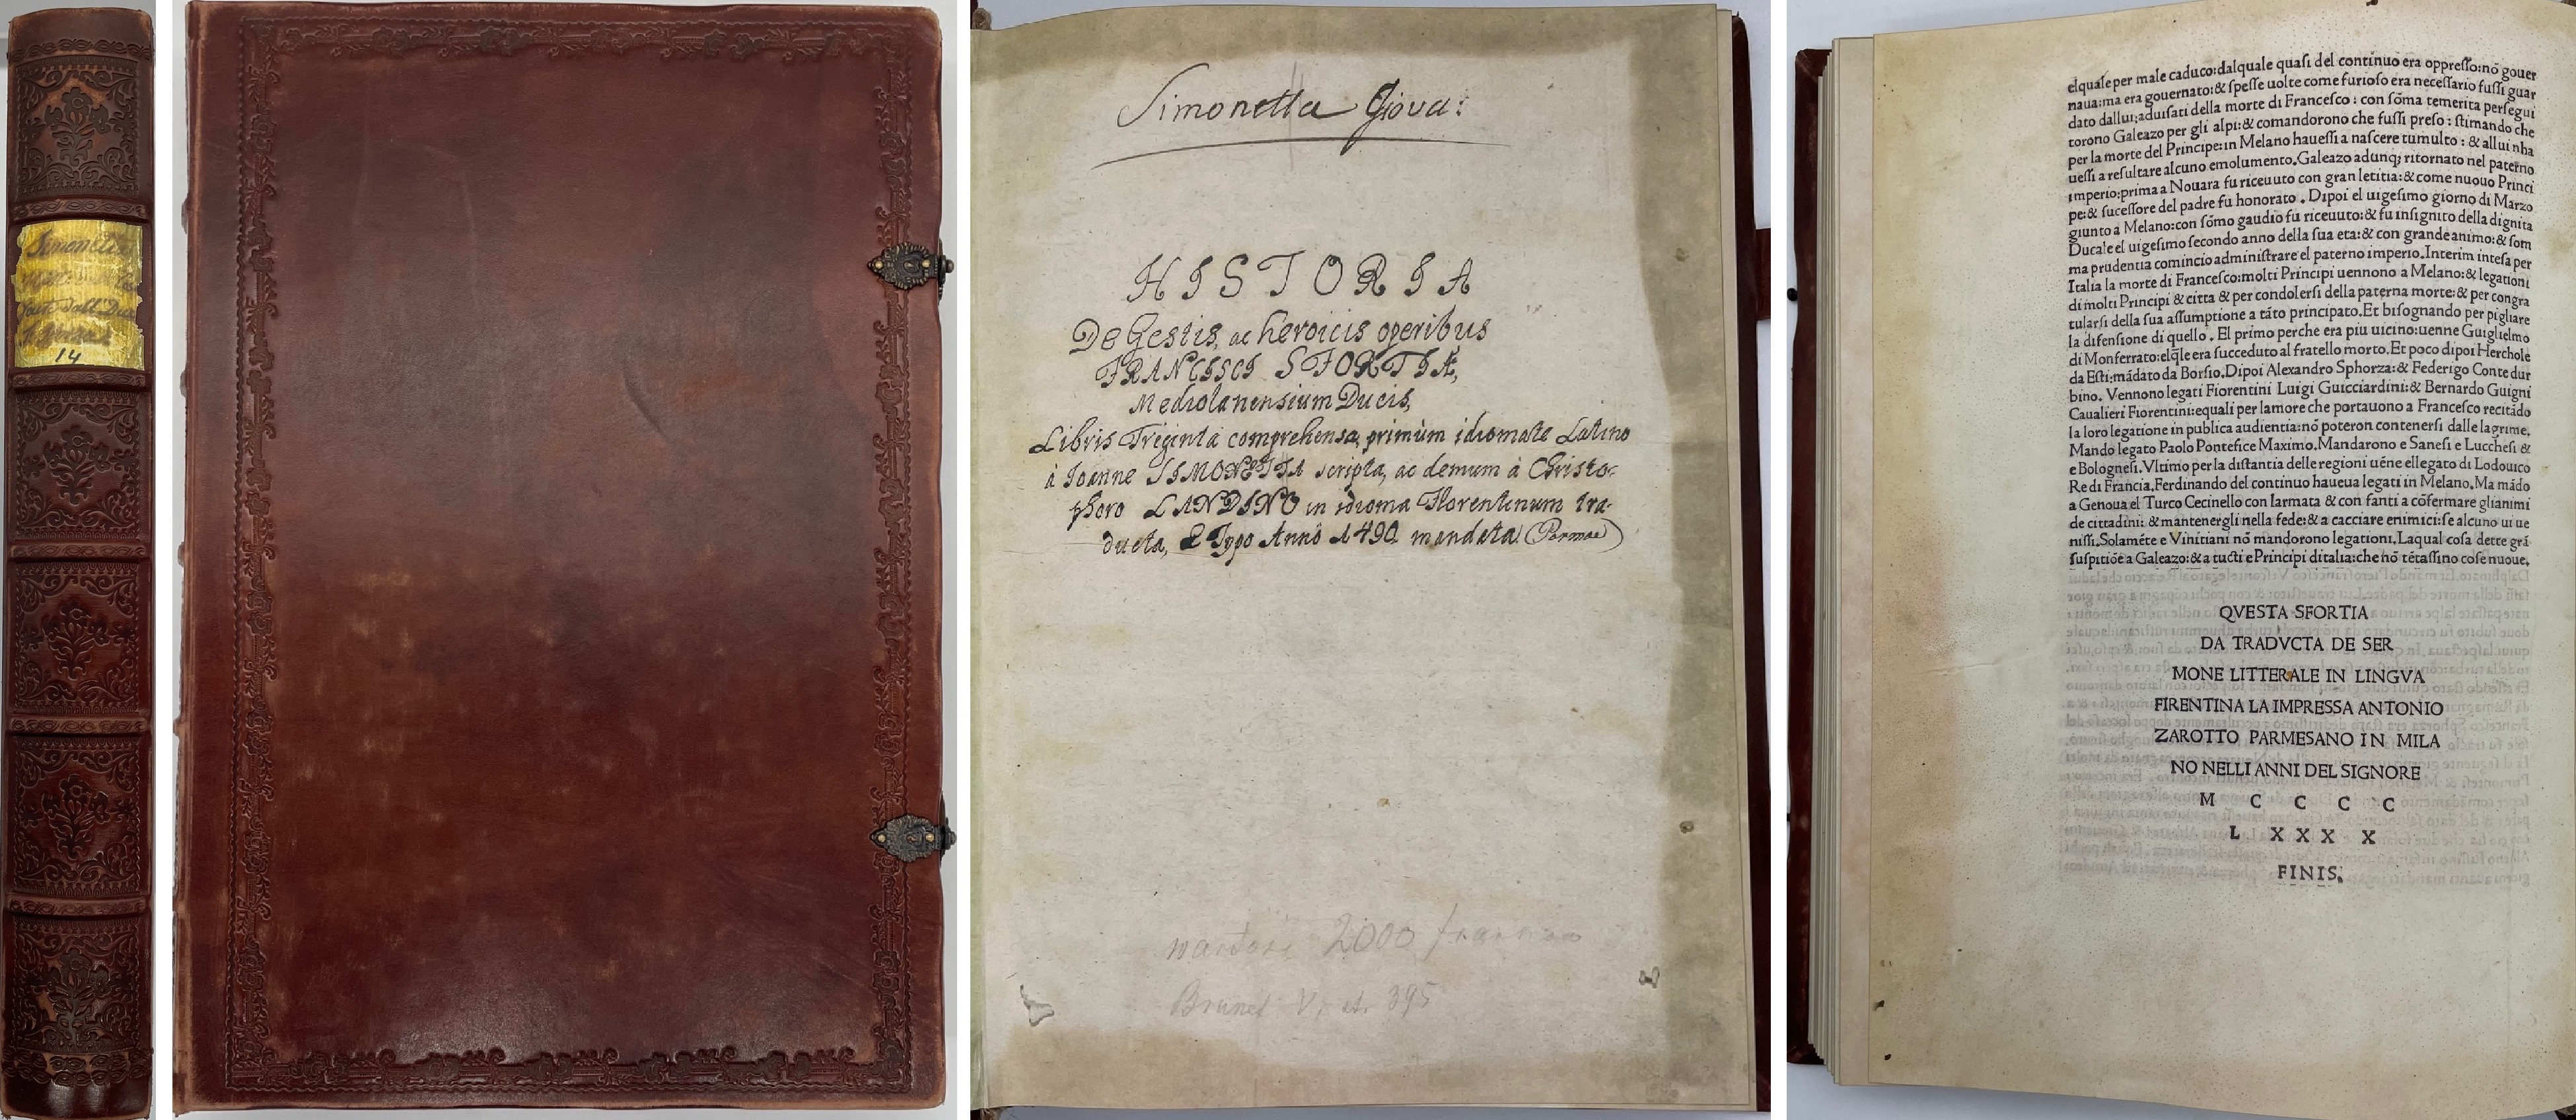 Simonetta
14
Simonetta Giova:
HISTORIA
De Gestis, ac heroicis operibus
FRANCISCI SFORTIÆ,
Mediolanensium Ducis,
Libris Triginta comprehensa, primùm idiomate Latino
à Joanne SIMONETTA scripta, ac demum à Christo-
phoro LANDINO in idioma Florentinum tra-
ducta, & Typo Anno 1490 mandata (Parmae)
2000
Brunet V, 395
elquale per male caduco:dalquale quasi del continuo era oppresso:nõ gouer
naua:ma era gouernato:& spesse uolte come furioso era necessario fussi guar
dato dallui:aduisati della morte di Francesco : con sõma temerita persegui
torono Galeazo per gli alpi:& comandorono che fussi preso : stimando che
per la morte del Principe:in Melano hauessi a nascere tumulto : & allui nha
uessi a resultare alcuno emolumento.Galeazo adunq; ritornato nel paterno
imperio:prima a Nouara fu riceuuto con gran letitia:& come nuouo Princi
pe:& sucessore del padre fu honorato . Dipoi el uigesimo giorno di Marzo
giunto a Melano:con sõmo gaudio fu riceuuto:& fu insignito della dignita
Ducale el uigesimo secondo anno della sua eta:& con grande animo:& som
ma prudentia comincio administrare el paterno imperio.Interim intesa per
Italia la morte di Francesco:molti Principi uennono a Melano:& legationi
di molti Principi & citta & per condolersi della paterna morte:& per congra
tularsi della sua assumptione a tãto principato.Et bisognando per pigliare
la difensione di quello . El primo perche era piu uicino:uenne Guiglielmo
di Monferrato:elq̃le era succeduto al fratello morto.Et poco dipoi Herchole
da Esti:mãdato da Borsio.Dipoi Alexandro Sphorza:& Federigo Conte dur
bino. Vennono legati Fiorentini Luigi Guicciardini:& Bernardo Guigni
Caualieri Fiorentini:equali per lamore che portauono a Francesco recitãdo
la loro legatione in publica audientia:nõ poteron contenersi dalle lagrime.
Mando legato Paolo Pontefice Maximo.Mandarono e Sanesi e Lucchesi &
e Bolognesi.Vltimo per la distantia delle regioni uéne ellegato di Lodouico
Re di Francia.Ferdinando del continuo haueua legati in Melano.Ma mãdo
a Genoua el Turco Cecinello con larmata & con fanti a cõfermare glianimi
de cittadini: & mantenergli nella fede:& a cacciare enimici:se alcuno ui ue
nissi.Solaméte e Vinitiani nõ mandorono legationi.Laqual cosa dette grã
suspitiõe a Galeazo:& a tucti e Principi ditalia:che nõ tétassino cose nuoue.
QVESTA SFORTIA
DA TRADVCTA DE SER
MONE LITTERALE IN LINGVA
FIRENTINA LA IMPRESSA ANTONIO
ZAROTTO PARMESANO IN MILA
NO NELLI ANNI DEL SIGNORE
M C C C C
L X X X X
FINIS.